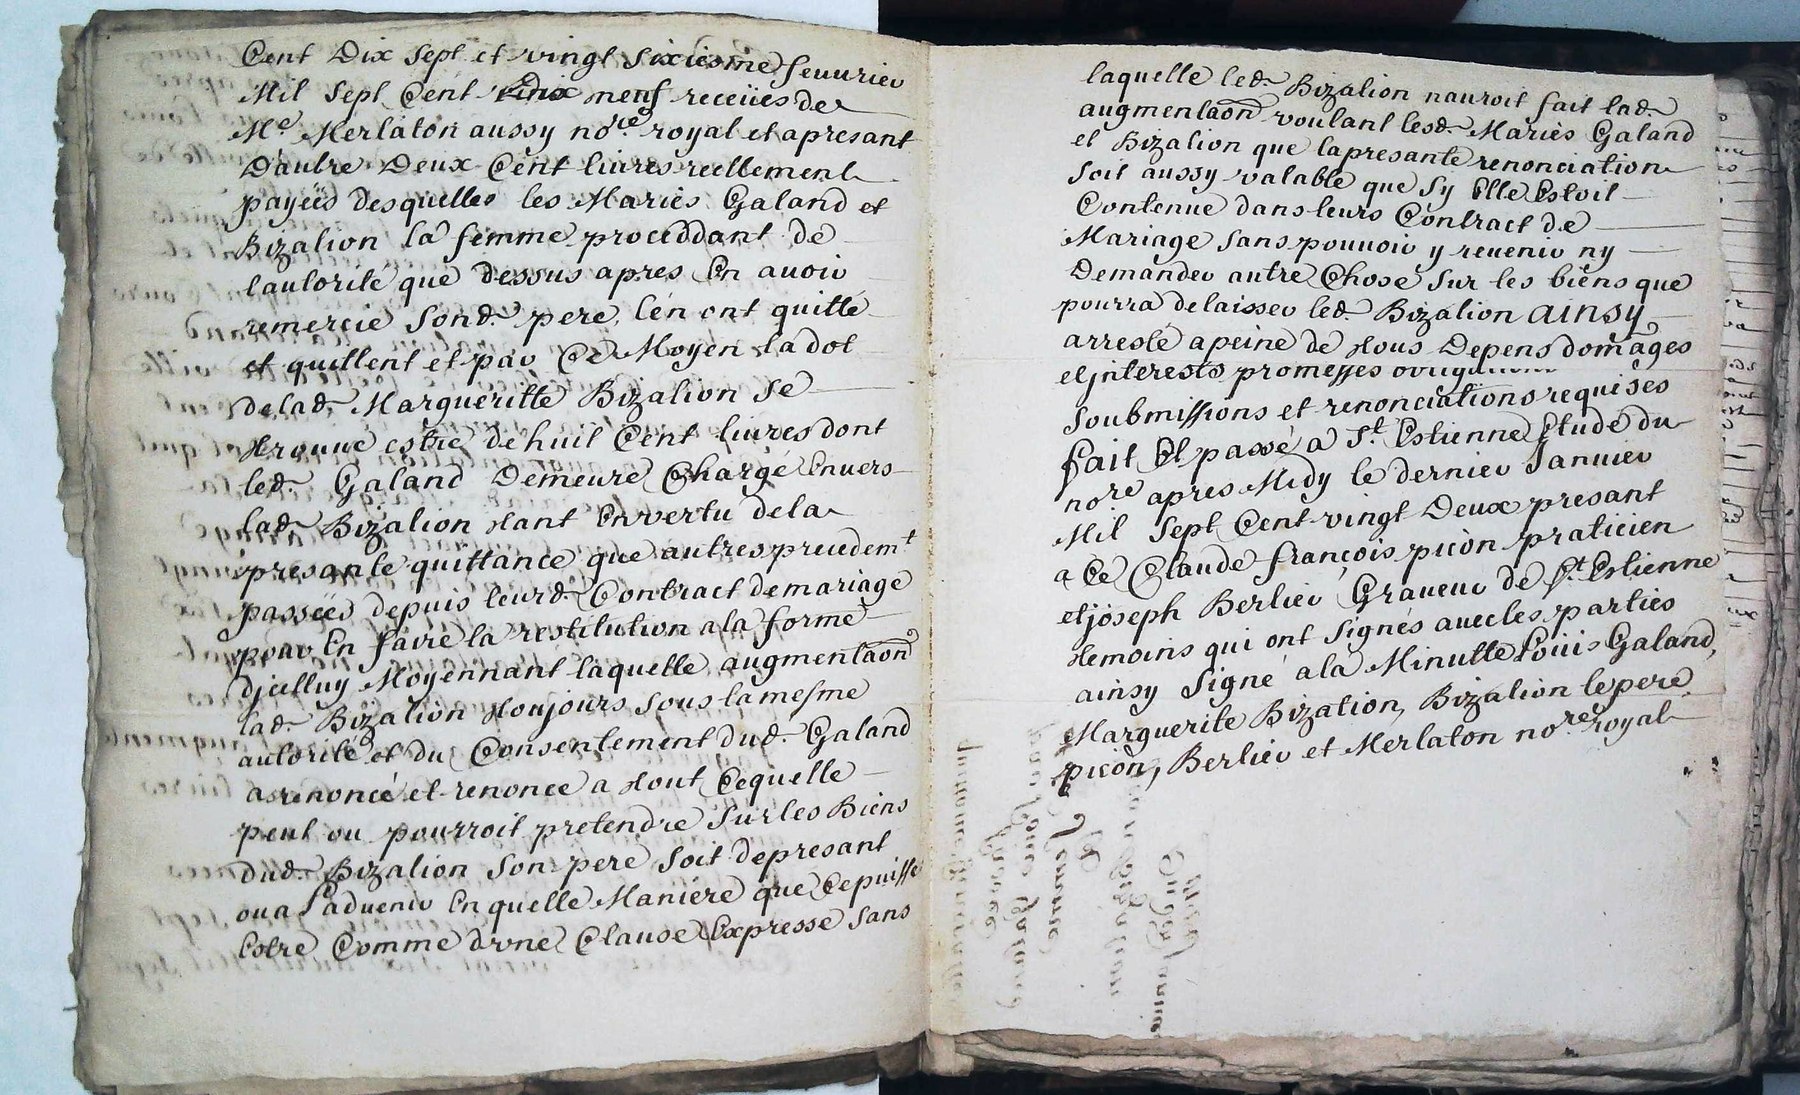 Cent Dix sept et vingt sixiesme feuurier
Mil sept Cent Dix neuf receües de
Me. Merlaton aussy nore. royal et apresant
Dautre Deux Cent liures reellement
payëes desquelles les Mariés Galand et
Bizalion la femme proceddant de
lautorité que dessus apres En auoir
remercié sond. pere, l'en ont quitté
et quittent et par Ce Moyen la dot
de lad. Margueritte Bizalion se
trouue estre de huit Cent liures dont
led. Galand Demeure Chargé Enuers
lad. Bizalion tant En vertu de la
presante quittance que autres precedemt.
passëes depuis leurd. Contract de mariage
pour En faire la restitution a la forme
dicelluy Moyennant laquelle augmentaon
lad. Bizalion toujours sous la mesme
autorité et du Consentement dud. Galand
a renoncé et renonce a tout Cequelle
peut ou pourroit pretendre sur les Biens
dud. Bizalion son pere soit de presant
ou a l'aduenir En quelle Maniére que Ce puisse
Estre Comme d'vne Clause Expresse sans
laquelle led. Bizalion nauroit fait lad.
augmentaon voulant lesd. Mariés Galand
et Bizalion que la presante renonciation
soit aussy valable que sy Elle Estoit
Contenue dans leurs Contract de
Mariage sans pouuoir y reuenir ny
Demander autre Chose sur les biens que
pourra delaisser led. Bizalion ainsy
arresté a peine de tous Depens domages
et jnterests promesses
soubmissions et renonciations requises
fait Et passé a St. Estienne Etude du
nore apres Midy le dernier Januier
Mil sept Cent vingt Deux presant
a Ce Claude françois picon praticien
et joseph Berlier Graueur de St. Estienne
temoins qui ont signés auec les parties
ainsy signé a la Minutte Loüis Galand,
Marguerite Bizalion, Bizalion le pere,
picon, Berlier et Merlaton nore. royal